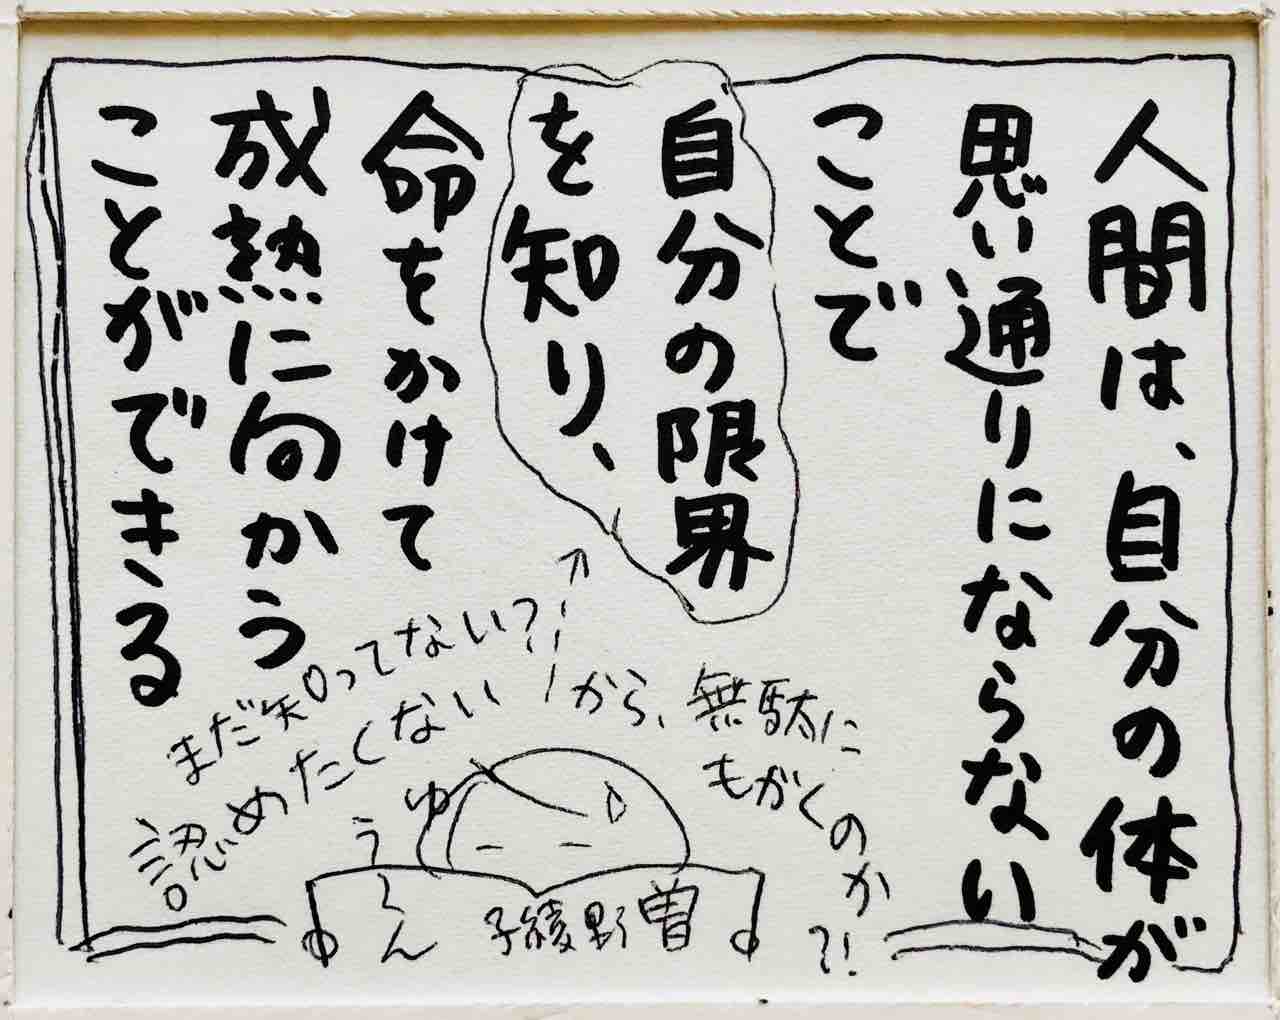 人間は、自分の体が
思い通りにならない
ことで
自分の限界
を知り、
命をかけて
成熟に向かう
ことができる
まだ知ってない?!
認めたくない!から、無駄に
もがくのか?!
ゆうくん
曽野綾子